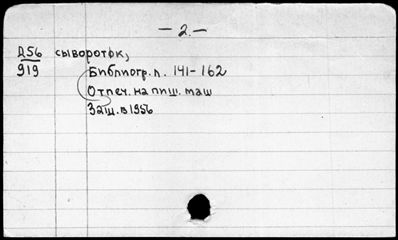 — 2. —
Д56 сывороток,
919
Библиогр. л. 141-162
Отпеч. на пиш. маш
Защ. в 1956